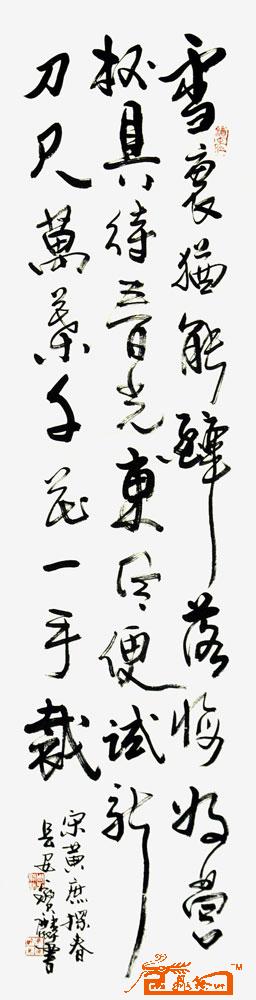 雪裏猶能醉落梅好營
杯具待春光東風便試新
刀尺萬葉千花一手裁
宋黄庶探春
長安書